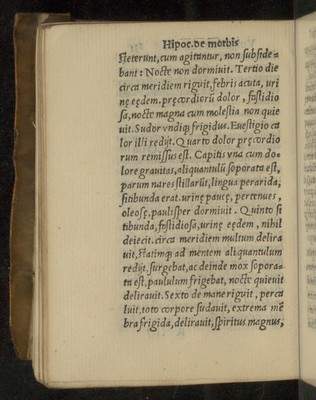 Hipoc. de morbis
steterunt, cum agitantur, non subside-
bant: Nocte non dormiuit. Tertio die
circa meridiem riguit, febris acuta, uri
nę eędem, pręcordiorũ dolor, fastidio
sa, nocte magna cum molestia non quie
uit. Sudor vndiq; frigidus. Euestigio ca
lor illi redijt. Quarto dolor pręcordio
rum remissus est. Capitis vna cum do-
lore grauitas, aliquantulũ soporata est,
parum nares stillarũt, lingua perarida,
sitibunda erat. urinę paucę, pertenues,
oleosę, paulisper dormiuit. Quinto si
tibunda, fastidiosa, urinę eędem, nihil
deiecit. circa meridiem multum delira
uit, statimq; ad mentem aliquantulum
redijt. surgebat, ac deinde mox sopora-
ta est, paululum frigebat, nocte quieuit
delirauit. Sexto de mane riguit, perca
luit, toto corpore sudauit, extrema mẽ
bra frigida, delirauit, spiritus magnus,